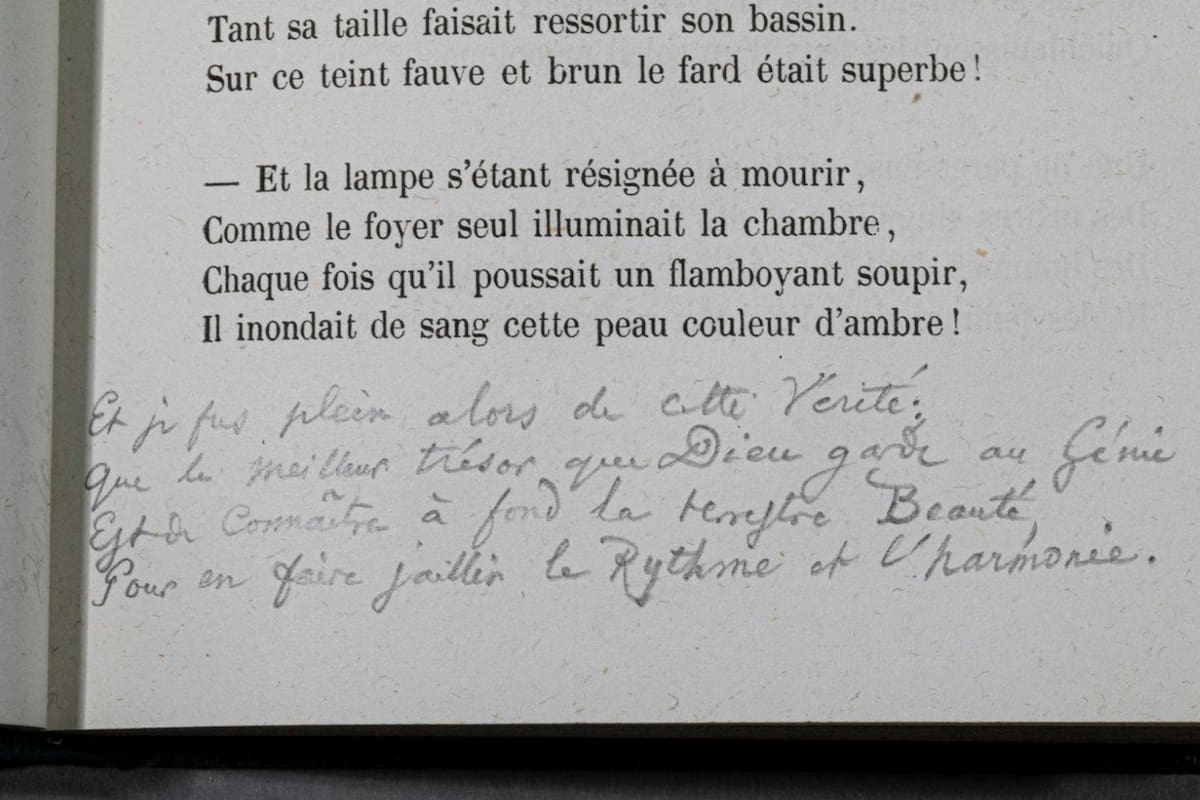 Tant sa taille faisait ressortir son bassin.
Sur ce teint fauve et brun le fard était superbe !
— Et la lampe s'étant résignée à mourir,
Comme le foyer seul illuminait la chambre,
Chaque fois qu'il poussait un flamboyant soupir,
Il inondait de sang cette peau couleur d'ambre !
Et je fus plein alors de cette Vérité:
Que le meilleur trésor que Dieu garde au Génie
Est de Connaître à fond la terrestre Beauté,
Pour en faire jaillir le Rythme et l'harmonie.